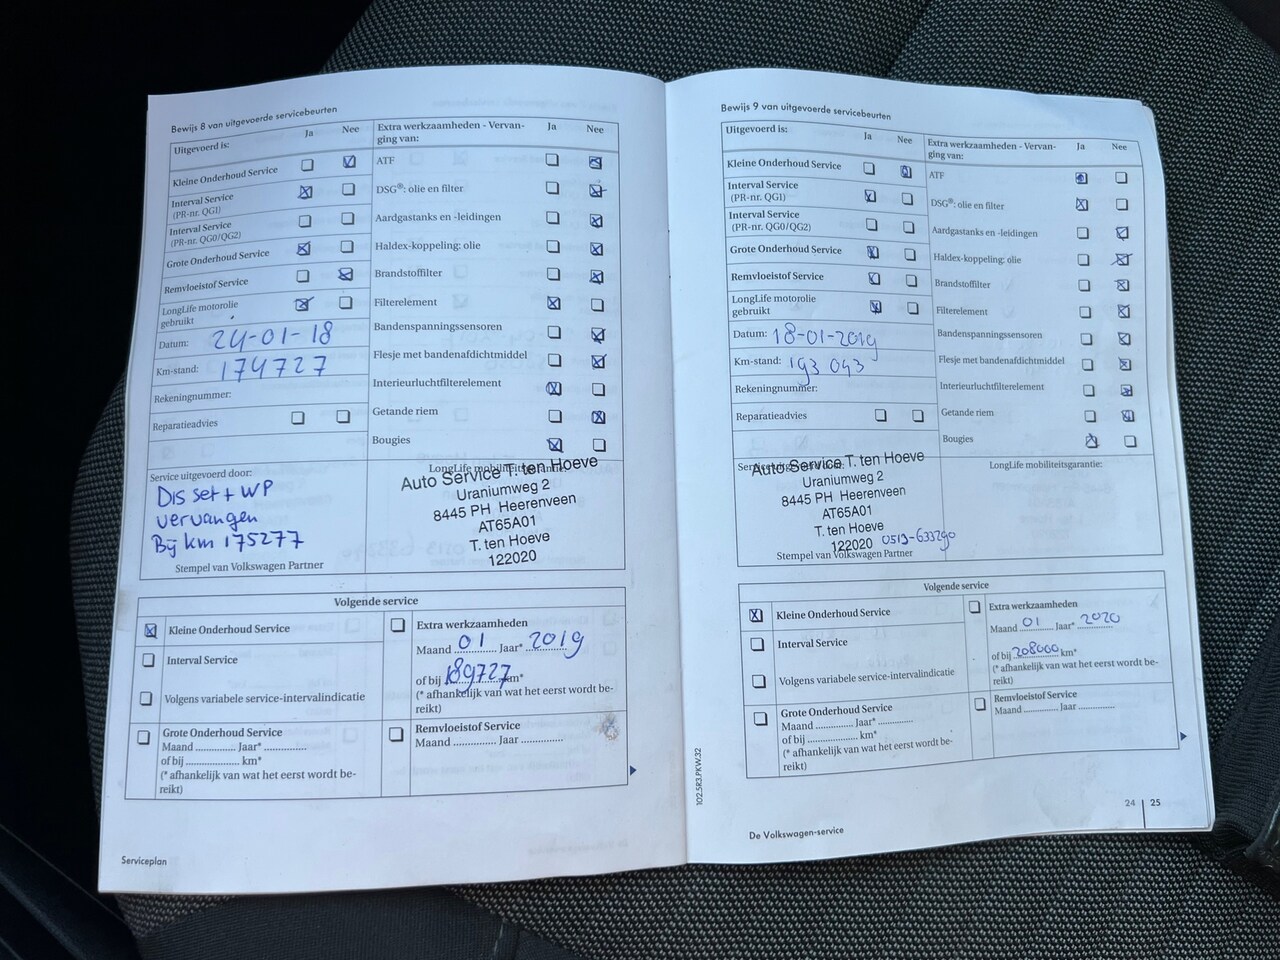 Bewijs 8 van uitgevoerde servicebeurten
Uitgevoerd is:
Ja
Nee
Kleine Onderhoud Service
Interval Service
(PR-nr. QG1)
Interval Service
(PR-nr. QG0/QG2)
Grote Onderhoud Service
Remvloeistof Service
LongLife motorolie
gebruikt
Datum: 24-01-18
Km-stand: 174727
Rekeningnummer:
Reparatieadvies
Extra werkzaamheden - Vervan-
ging van:
Ja
Nee
ATF
DSG®: olie en filter
Aardgastanks en -leidingen
Haldex-koppeling: olie
Brandstoffilter
Filterelement
Bandenspanningssensoren
Flesje met bandenafdichtmiddel
Interieurluchtfilterelement
Getande riem
Bougies
Service uitgevoerd door:
Dis set + WP
vervangen
Bij km 175277
Stempel van Volkswagen Partner
LongLife mobiliteitsgarantie:
Auto Service T. ten Hoeve
Uraniumweg 2
8445 PH Heerenveen
AT65A01
T. ten Hoeve
122020
Volgende service
Kleine Onderhoud Service
Interval Service
Volgens variabele service-intervalindicatie
Grote Onderhoud Service
Maand .............. Jaar* ..............
of bij .................. km*
(* afhankelijk van wat het eerst wordt be-
reikt)
Extra werkzaamheden
Maand 01 Jaar* 2019
of bij 189727 km*
(* afhankelijk van wat het eerst wordt be-
reikt)
Remvloeistof Service
Maand .............. Jaar ..............
Serviceplan
Bewijs 9 van uitgevoerde servicebeurten
Uitgevoerd is:
Ja
Nee
Kleine Onderhoud Service
Interval Service
(PR-nr. QG1)
Interval Service
(PR-nr. QG0/QG2)
Grote Onderhoud Service
Remvloeistof Service
LongLife motorolie
gebruikt
Datum: 18-01-2019
Km-stand: 193 043
Rekeningnummer:
Reparatieadvies
Extra werkzaamheden - Vervan-
ging van:
Ja
Nee
ATF
DSG®: olie en filter
Aardgastanks en -leidingen
Haldex-koppeling: olie
Brandstoffilter
Filterelement
Bandenspanningssensoren
Flesje met bandenafdichtmiddel
Interieurluchtfilterelement
Getande riem
Bougies
Auto Service T. ten Hoeve
Uraniumweg 2
8445 PH Heerenveen
AT65A01
T. ten Hoeve
122020 0513-633290
Stempel van Volkswagen Partner
LongLife mobiliteitsgarantie:
Volgende service
Kleine Onderhoud Service
Interval Service
Volgens variabele service-intervalindicatie
Grote Onderhoud Service
Maand .............. Jaar* ..............
of bij .................. km*
(* afhankelijk van wat het eerst wordt be-
reikt)
Extra werkzaamheden
Maand 01 Jaar* 2020
of bij 208000 km*
(* afhankelijk van wat het eerst wordt be-
reikt)
Remvloeistof Service
Maand .............. Jaar ..............
102.5R3.PKW.32
De Volkswagen-service
24 | 25